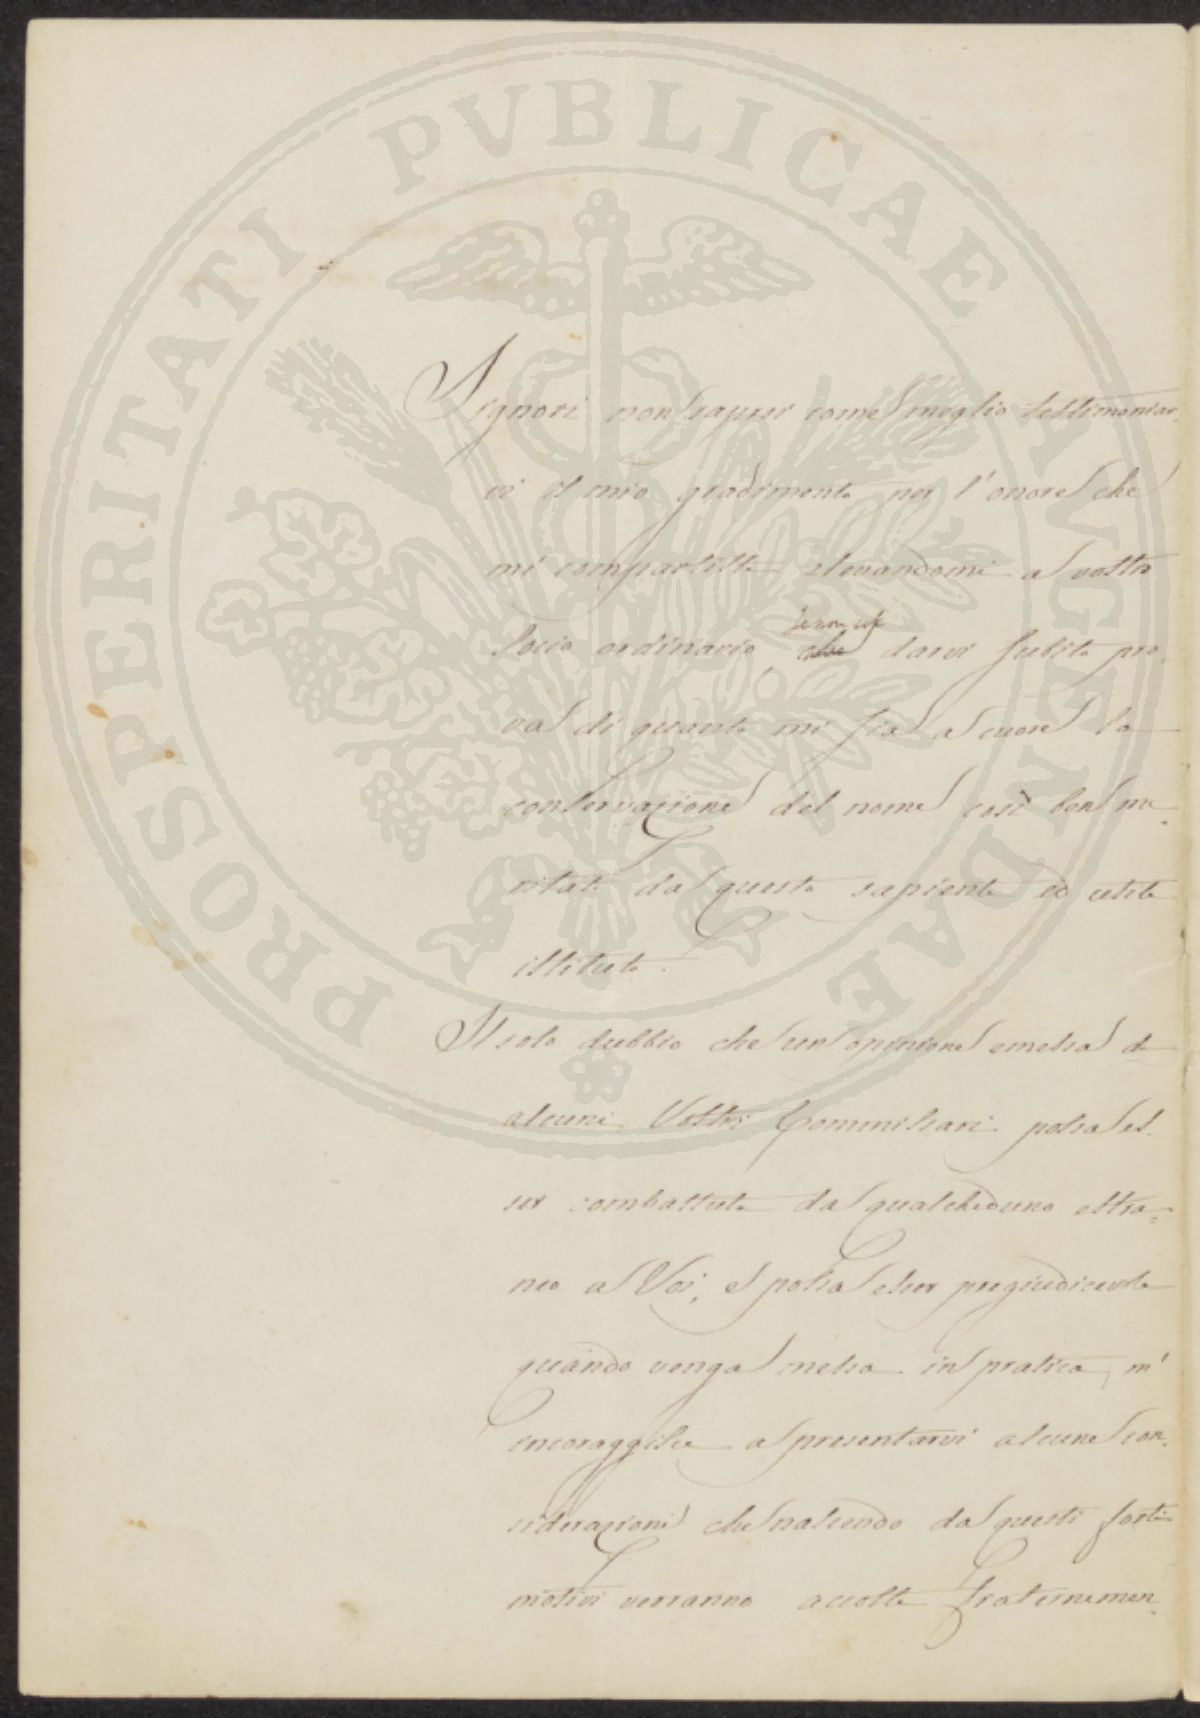 PROSPERITATI PVBLICAE AVGENDAE
Signori non saprei come meglio testimoniar
vi il mio gradimento per l'onore che
mi compartiste elevandomi a vostro
se non col
Socio ordinario, che darvi subito pro
va di quanto mi sia a cuore la
conservazione del nome così ben me-
ritato da questo sapiente ed utile
istituto.
Il solo dubbio che un opinione emessa da
alcuni Vostri Commissari possa es-
ser combattuta da qualcheduno estra-
neo a Voi, e possa esser pregiudicevole
quando venga messa in pratica, m'
incoraggisce a presentarvi alcune con-
siderazioni che nascendo da questi forti
motivi verranno accolte fraternamen-